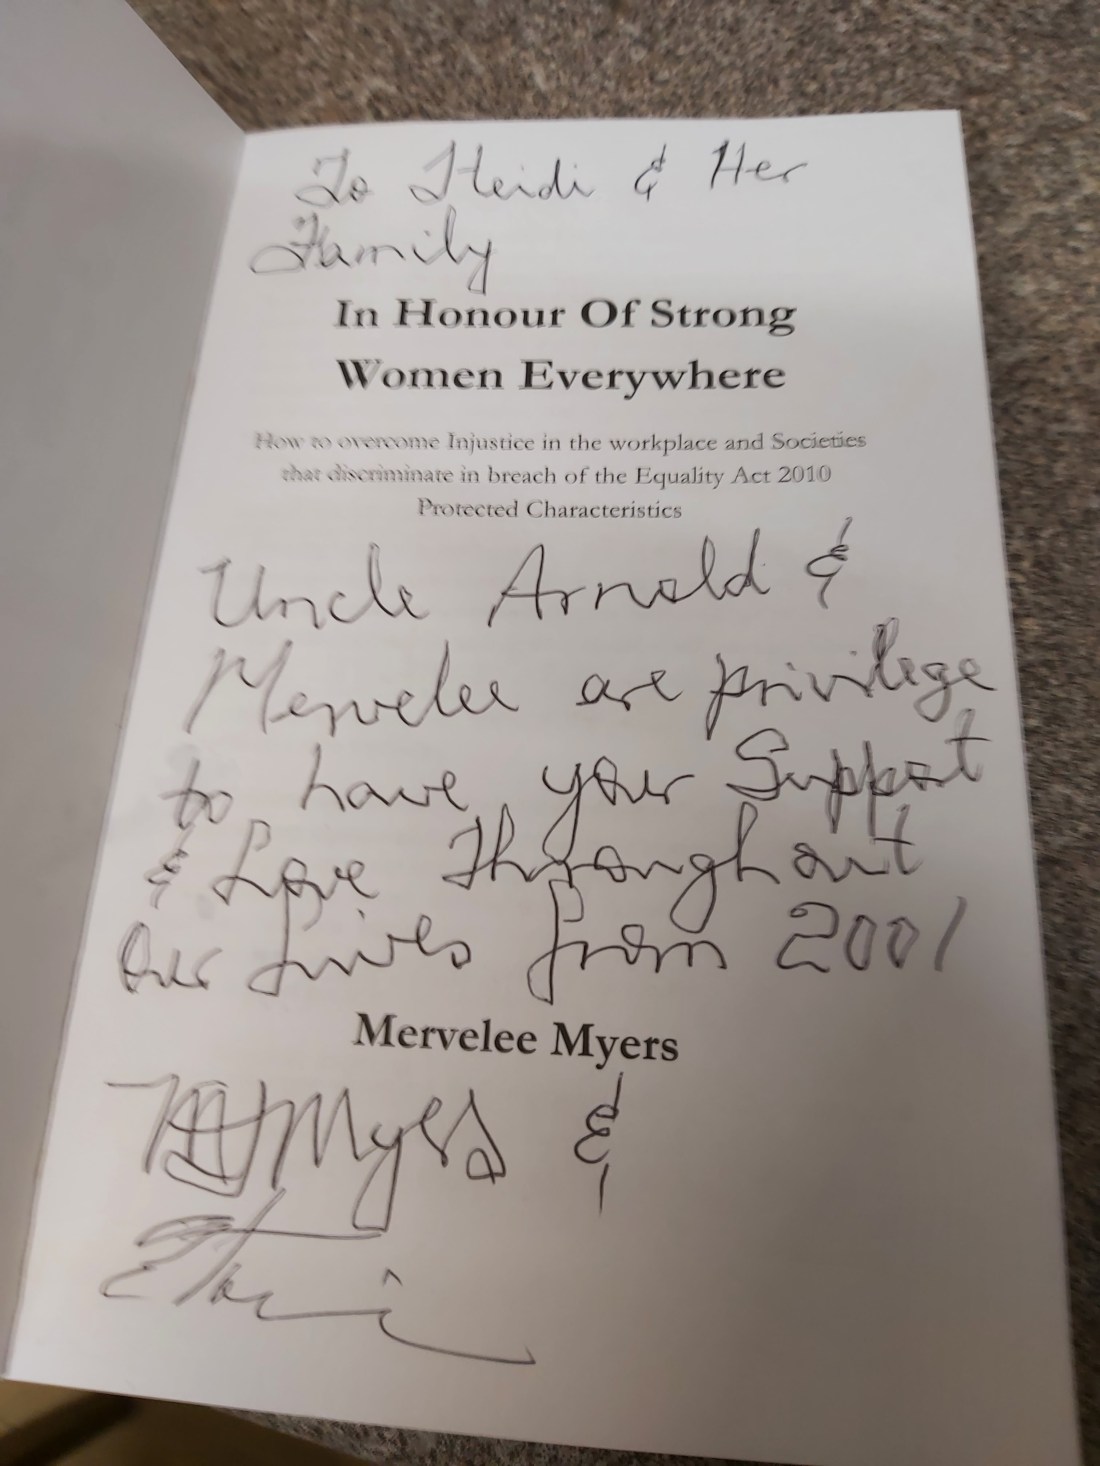 To Heidi & Her
Family
In Honour Of Strong
Women Everywhere
How to overcome Injustice in the workplace and Societies
that discriminate in breach of the Equality Act 2010
Protected Characteristics
Uncle Arnold &
Mervelee are privilege
to have your Support
& Love Throughout
Our Lives from 2001
Mervelee Myers
Myers &